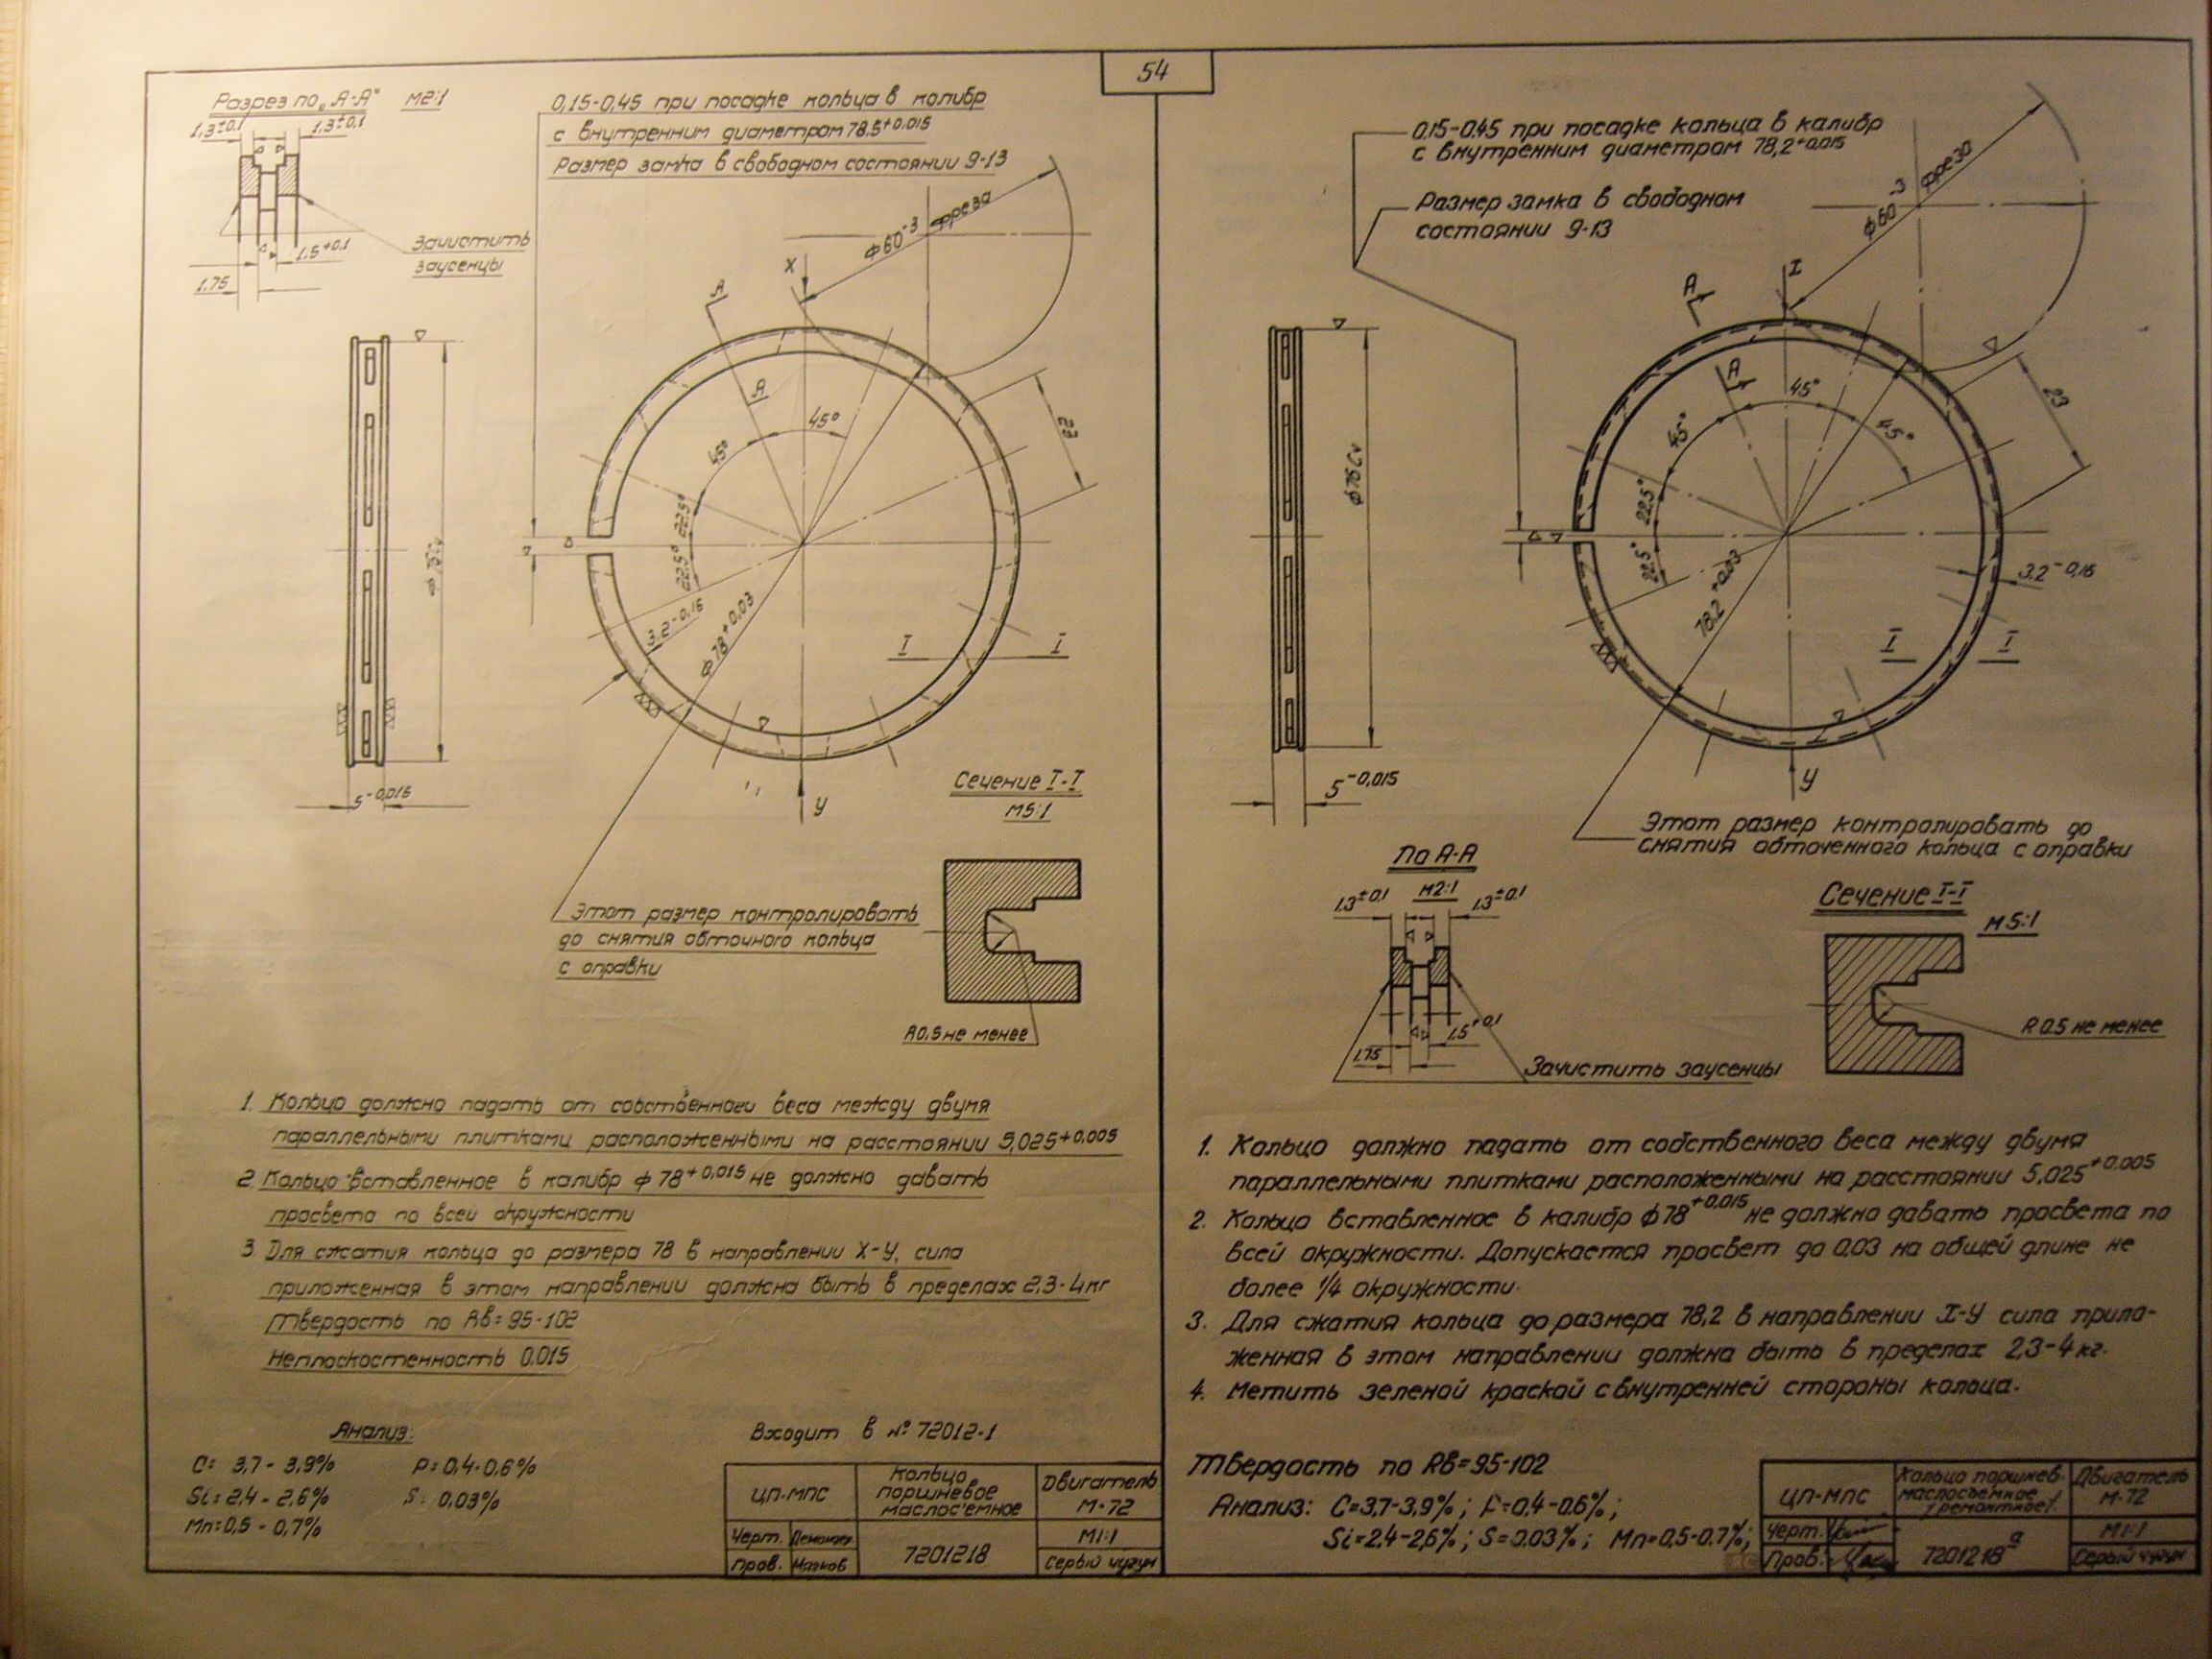 54
Разрез по „А-А" М2:1
1,3±0,1
1,3±0,1
1.5+0.1
1.75
Зачистить
заусенцы
0,15-0,45 при посадке кольца в колибр
с внутренним диаметром 78,5+0.015
Размер замка в свободном состоянии 9-13
ф60-3 фреза
X
А
А
45°
45°
22,5°
22,5°
23
3,2-0,16
ф78+0,03
I
I
У
5-0,015
Этот размер контролировать
до снятия обточного кольца
с оправки
Сечение I-I
М5:1
R0,5 не менее
1. Кольцо должно падать от собственного веса между двумя
параллельными плитками расположенными на расстоянии 5,025+0,005
2. Кольцо вставленное в калибр ф78+0,015 не должно давать
просвета по всей окружности
3. Для сжатия кольца до размера 78 в направлении Х-У, сила
приложенная в этом направлении должна быть в пределах 2,3-4кг
Твердость по Rв=95-102
Неплоскостенность 0,015
Анализ:
С= 3,7-3,9% Р=0,4-0,6%
Si=2,4-2,6% S: 0,03%
Mn=0,5-0,7%
Входит в № 72012-1
ЦП-МПС
Кольцо
поршневое
маслос'емное
Двигатель
М-72
Черт.
М1:1
Пров.
7201218
Серый чугун
0.15-0.45 при посадке кольца в калибр
с внутренним диаметром 78,2+0.015
Размер замка в свободном
состоянии 9-13
ф60-3 фреза
I
А
А
45°
45°
45°
22,5°
22,5°
23
ф76 Сч
78.2+0.03
3.2-0,16
I
I
У
5-0,015
Этот размер контролировать до
снятия обточенного кольца с оправки
По А-А
М2:1
1.3±0.1
1.3±0.1
1.5+0.1
1.75
Зачистить заусенцы
Сечение I-I
М5:1
R 0.5 не менее
1. Кольцо должно падать от собственного веса между двумя
параллельными плитками расположенными на расстоянии 5,025+0.005
2. Кольцо вставленное в калибр ф78+0,015 не должно давать просвета по
всей окружности. Допускается просвет до 0.03 на общей длине не
более 1/4 окружности.
3. Для сжатия кольца до размера 78,2 в направлении Х-У сила прило-
женная в этом направлении должна быть в пределах 2,3-4 кг.
4. Метить зеленой краской с внутренней стороны кольца.
Твердость по Rв=95-102
Анализ: С=3,7-3,9%; Р=0,4-0.6%;
Si=2.4-2,6%; S=0.03%; Mn=0,5-0.7%;
ЦП-МПС
Кольцо поршнев.
маслосъемное
/ремонтное/.
Двигатель
М-72
Черт.
М1:1
Пров.
7201218а
Серый чугун